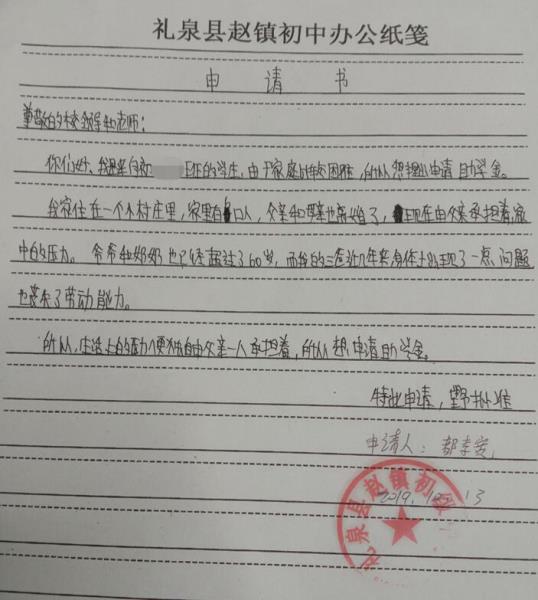 礼泉县赵镇初中办公纸笺
申 请 书
尊敬的校领导和老师：
你们好、我是来自初 班的学生，由于家庭比较困难，所以想提出申请助学金。
我家住在一个小村庄里，家里有 口人，父亲和母亲也离婚了， 现在由父亲承担着家
中的压力。爷爷和奶奶也已经超过了60岁，而我的三 近几年来身体上出现了一点问题
也丧失了劳动能力。
所以，生活上的压力便独自由父亲一人承担着，所以想申请助学金。
特此申请，望批准
申请人：
2019.
礼泉县赵镇初级